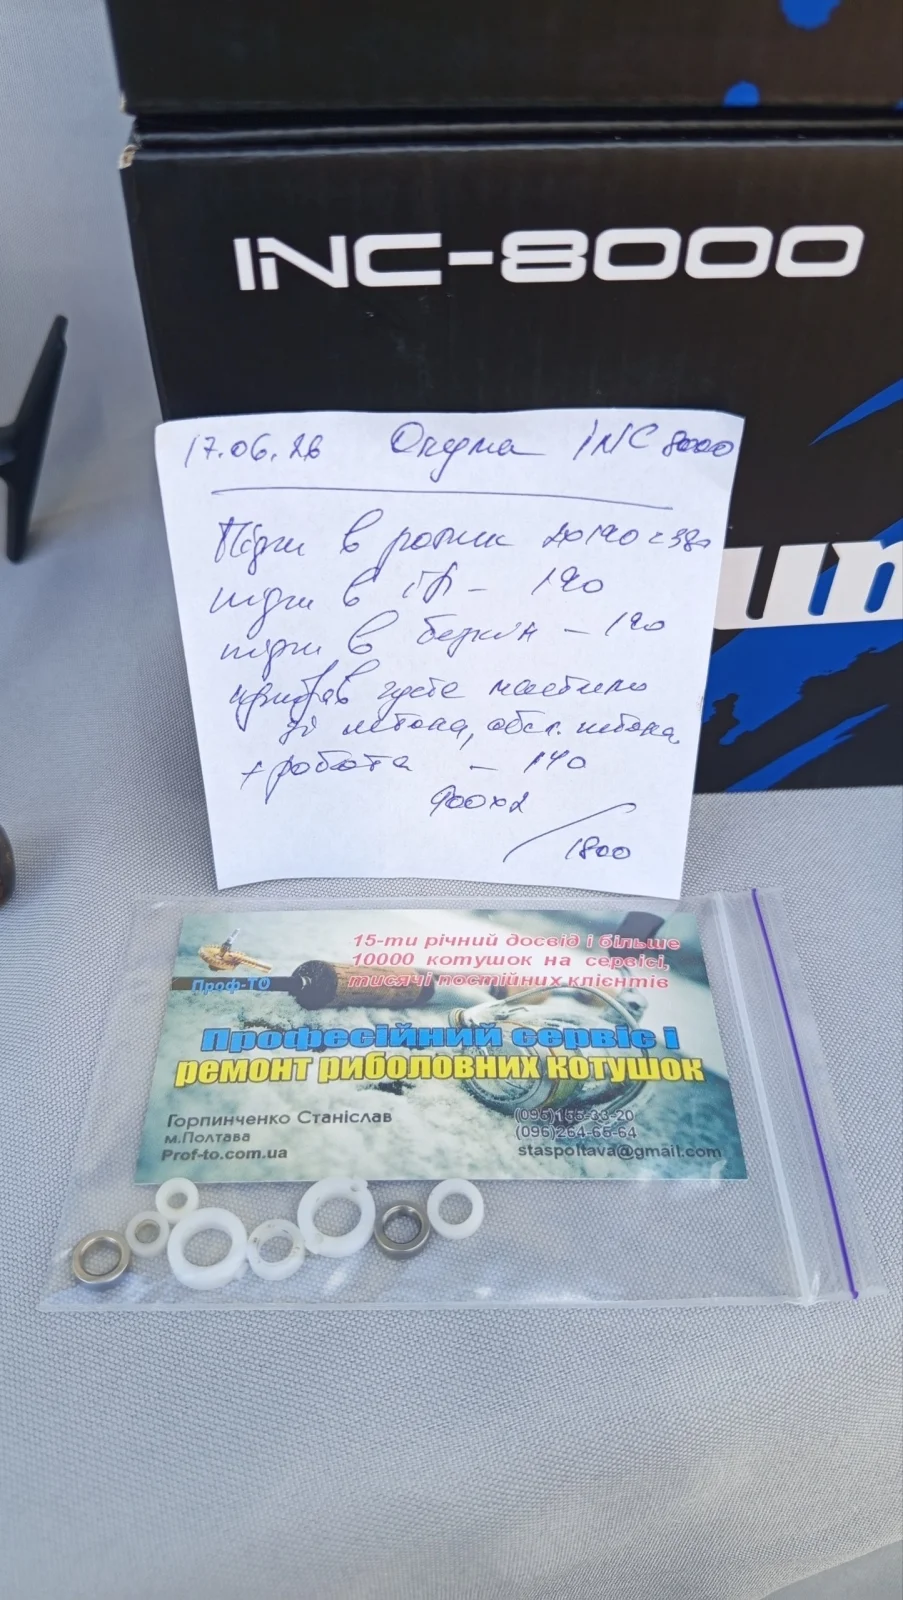 INC-8000
17.06.26 Окума INC 8000
Підш в ролик 2х190 = 380
підш в ГП - 190
підш в бегунк - 190
прибрав густе мастило
зі штока, обсл. штока
+ робота - 140
900х2
1800
un
15-ти річний досвід і більше
10000 котушок на сервісі,
тисячі постійних клієнтів
Проф-ТО
Професійний сервіс і
ремонт риболовних котушок
Горпинченко Станіслав
м.Полтава
Prof-to.com.ua
(095)155-33-20
(096)264-65-64
staspoltava@gmail.com